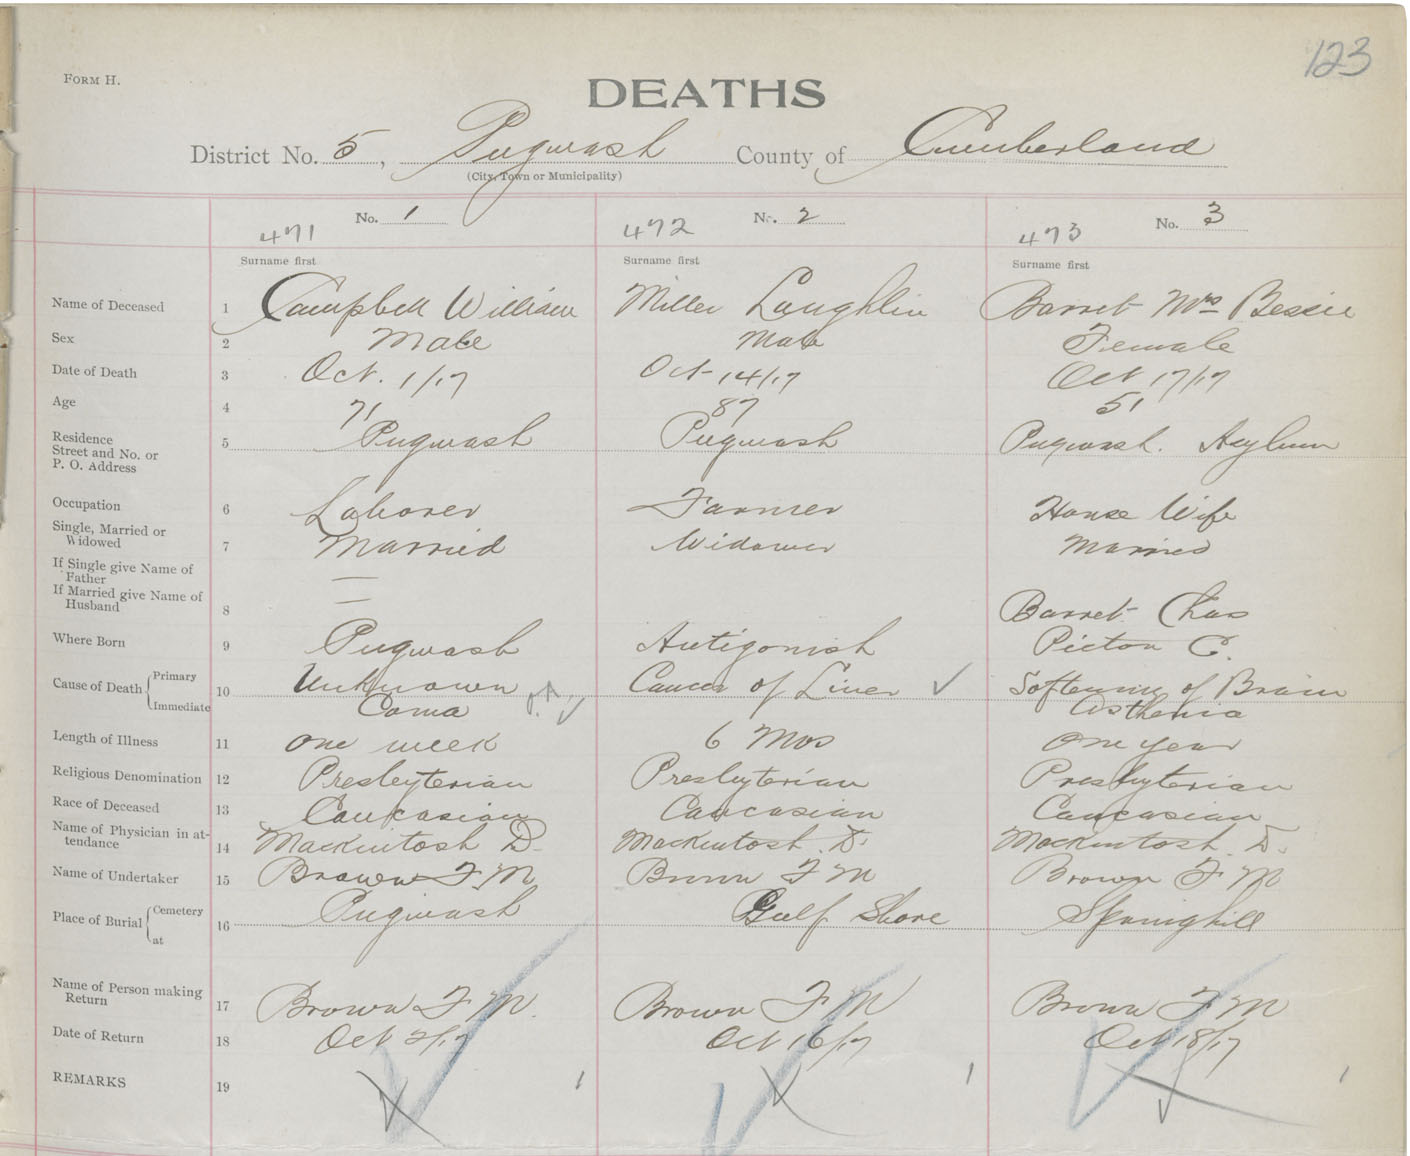 123
FORM H.
DEATHS
District No. 5, Pugwash County of Cumberland
(City, Town or Municipality)
No. 1 No. 2 No. 3
471 472 473
Surname first Surname first Surname first
Name of Deceased 1 Campbell William Miller Laughlin Barret Mrs Bessie
Sex 2 Male Male Female
Date of Death 3 Oct. 1/17 Oct 14/17 Oct 17/17
Age 4 71 87 51
Residence
Street and No. or 5 Pugwash Pugwash Pugwash. Asylum
P. O. Address
Occupation 6 Laborer Farmer House Wife
Single, Married or
Widowed 7 Married Widower Married
If Single give Name of
Father —
If Married give Name of
Husband 8 — Barret Chas
Where Born 9 Pugwash Antigonish Pictou C.
Cause of Death Primary 10 Unknown Cancer of Liver ✓ Softening of Brain
Immediate Coma ✓ Asthenia
Length of Illness 11 one week 6 Mos One year
Religious Denomination 12 Presbyterian Presbyterian Presbyterian
Race of Deceased 13 Caucasian Caucasian Caucasian
Name of Physician in at-
tendance 14 Mackintosh D. Mackintosh. D. Mackintosh. D.
Name of Undertaker 15 Brown F. M Brown F M Brown F M
Place of Burial Cemetery 16 Pugwash Gulf Shore Springhill
at
Name of Person making
Return 17 Brown F M. Brown F M Brown F M
Date of Return 18 Oct 2/17 Oct 16/17 Oct 18/17
REMARKS 19 1 1 1